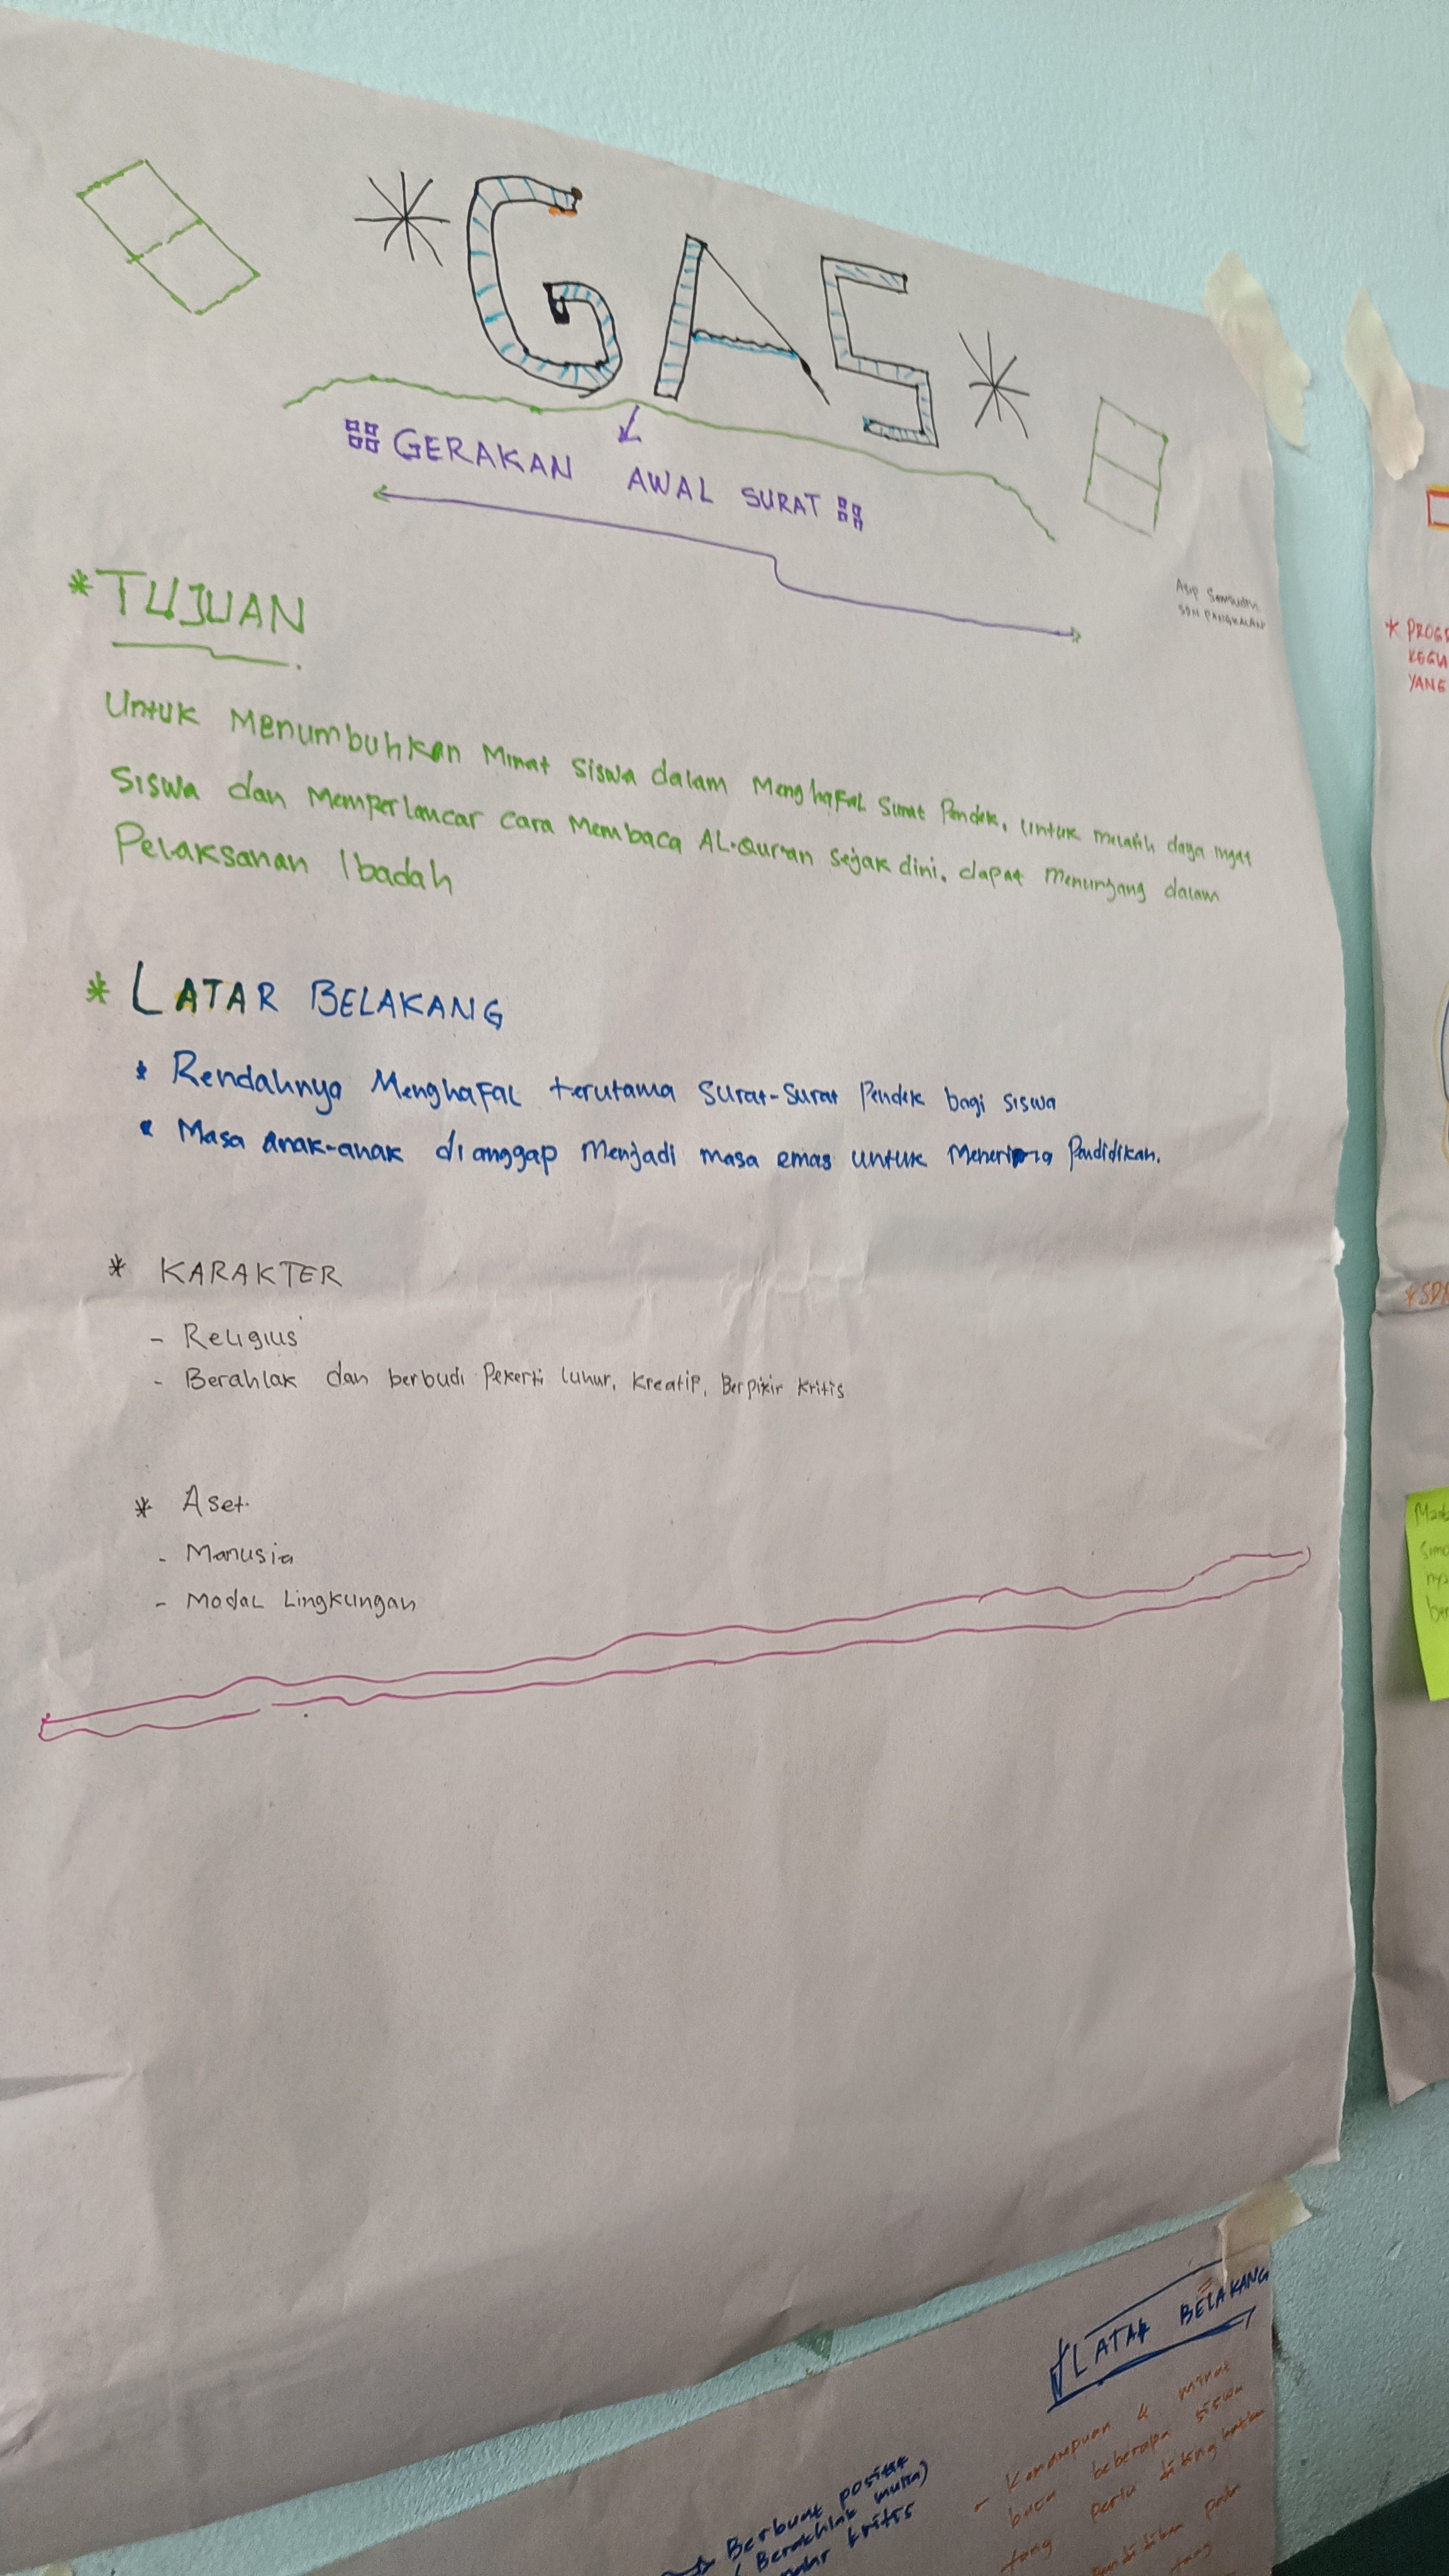 *GAS*
GERAKAN AWAL SURAT
Asip Samsudin
SDN PANGKALAN
* TUJUAN
Untuk Menumbuhkan Minat Siswa dalam Menghafal Surat Pendek, Untuk melatih daya ingat
Siswa dan Memperlancar cara Membaca AL-Qur'an sejak dini, dapat Menunjang dalam
Pelaksanan Ibadah
* LATAR BELAKANG
* Rendahnya Menghafal terutama Surat-Surat Pendek bagi siswa
* Masa anak-anak dianggap Menjadi masa emas untuk Menerima Pendidikan.
* KARAKTER
- Religius
- Berahlak dan berbudi Pekerti luhur, Kreatif, Berpikir Kritis
* Aset
- Manusia
- Modal Lingkungan
* PROG
KEGI
YANG
LATAR BELAKANG
- Kemampuan & minat
baca beberapa siswa
yang perlu ditingkatkan
Berbuat positif
(Berakhlak mulia)
kritis